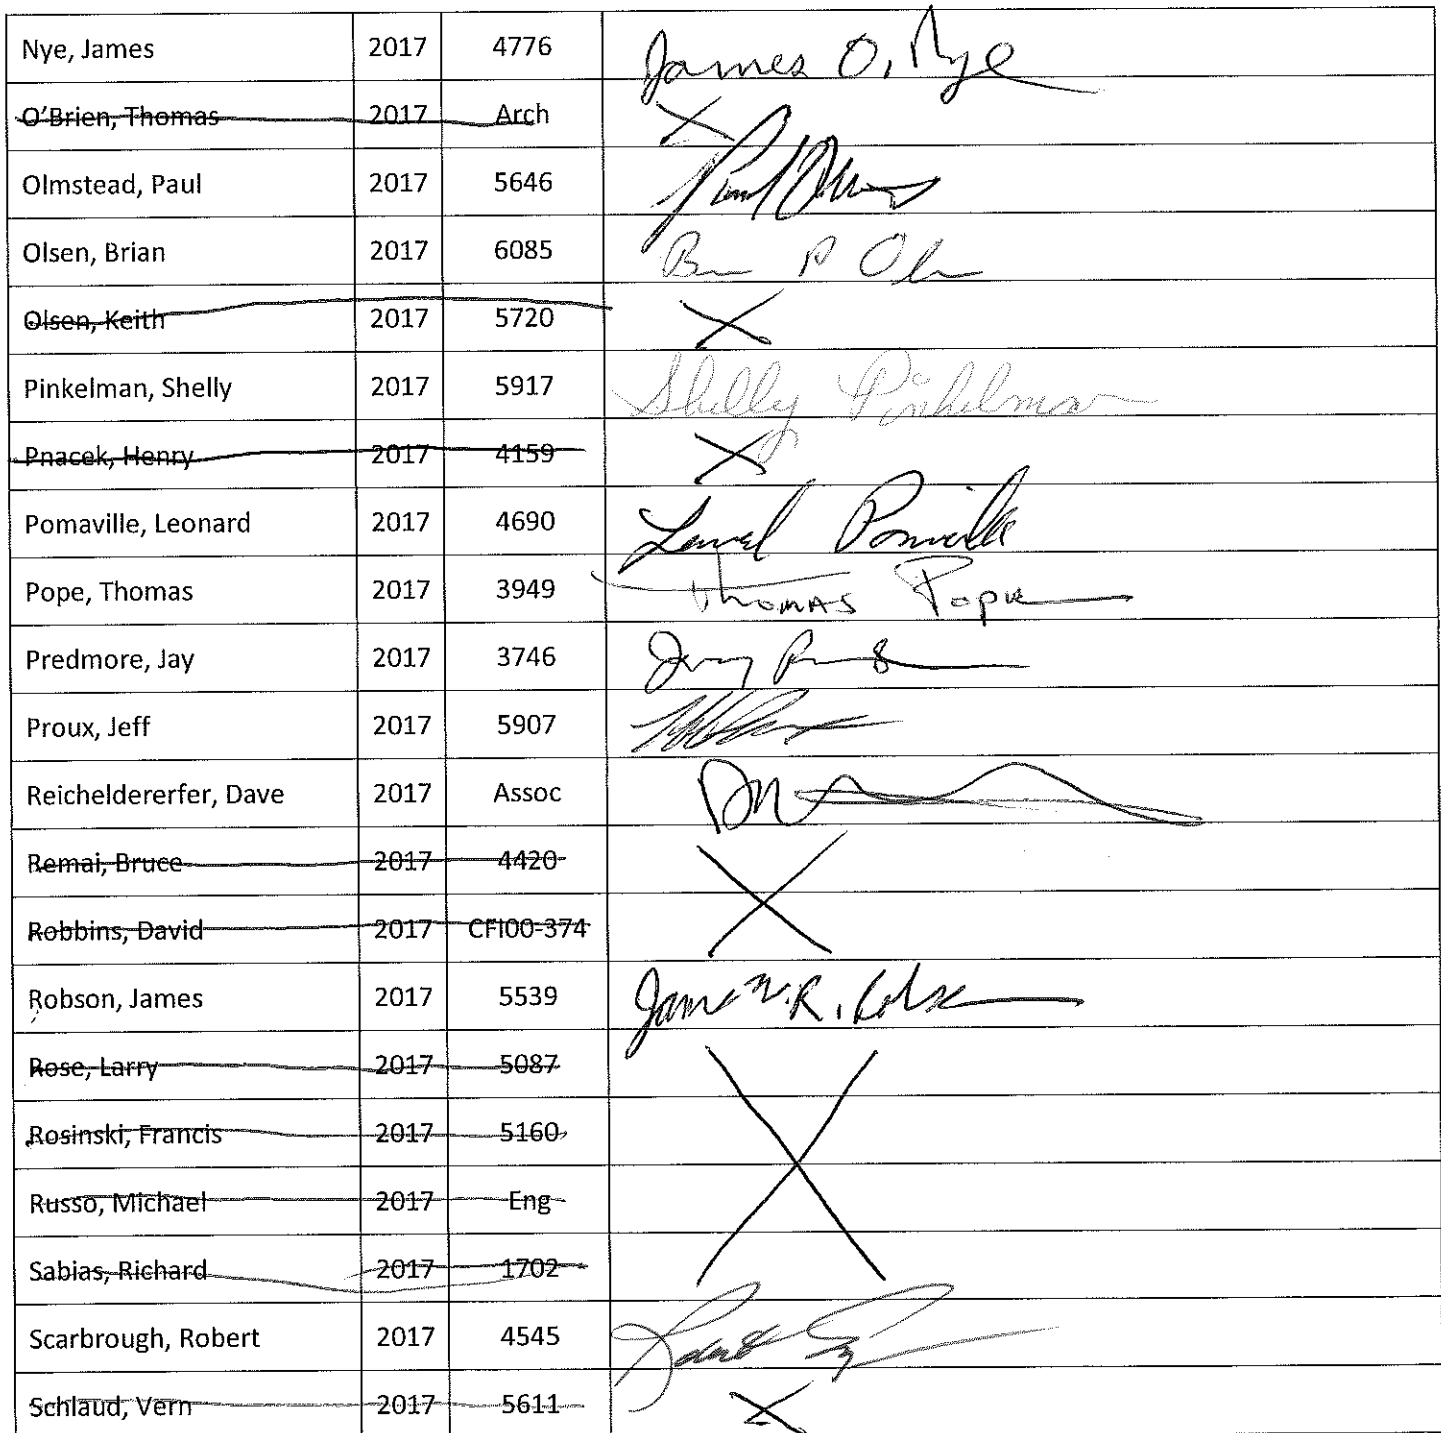 Nye, James 2017 4776 James O. Nye
O'Brien, Thomas 2017 Arch X
Olmstead, Paul 2017 5646 Paul
Olsen, Brian 2017 6085 B P Ol
Olsen, Keith 2017 5720 X
Pinkelman, Shelly 2017 5917 Shelly Pinkelman
Pnacek, Henry 2017 4159 X
Pomaville, Leonard 2017 4690
Pope, Thomas 2017 3949 Thomas Pope
Predmore, Jay 2017 3746
Proux, Jeff 2017 5907
Reicheldererfer, Dave 2017 Assoc
Remai, Bruce 2017 4420 X
Robbins, David 2017 CFI00-374
Robson, James 2017 5539 James R.
Rose, Larry 2017 5087 X
Rosinski, Francis 2017 5160
Russo, Michael 2017 Eng
Sabias, Richard 2017 1702
Scarbrough, Robert 2017 4545
Schlaud, Vern 2017 5611 X